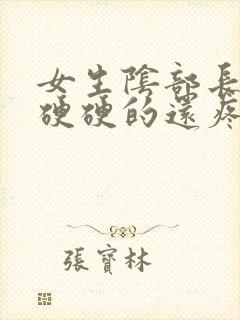 女生陰部長
硬硬的還疼
張寶林